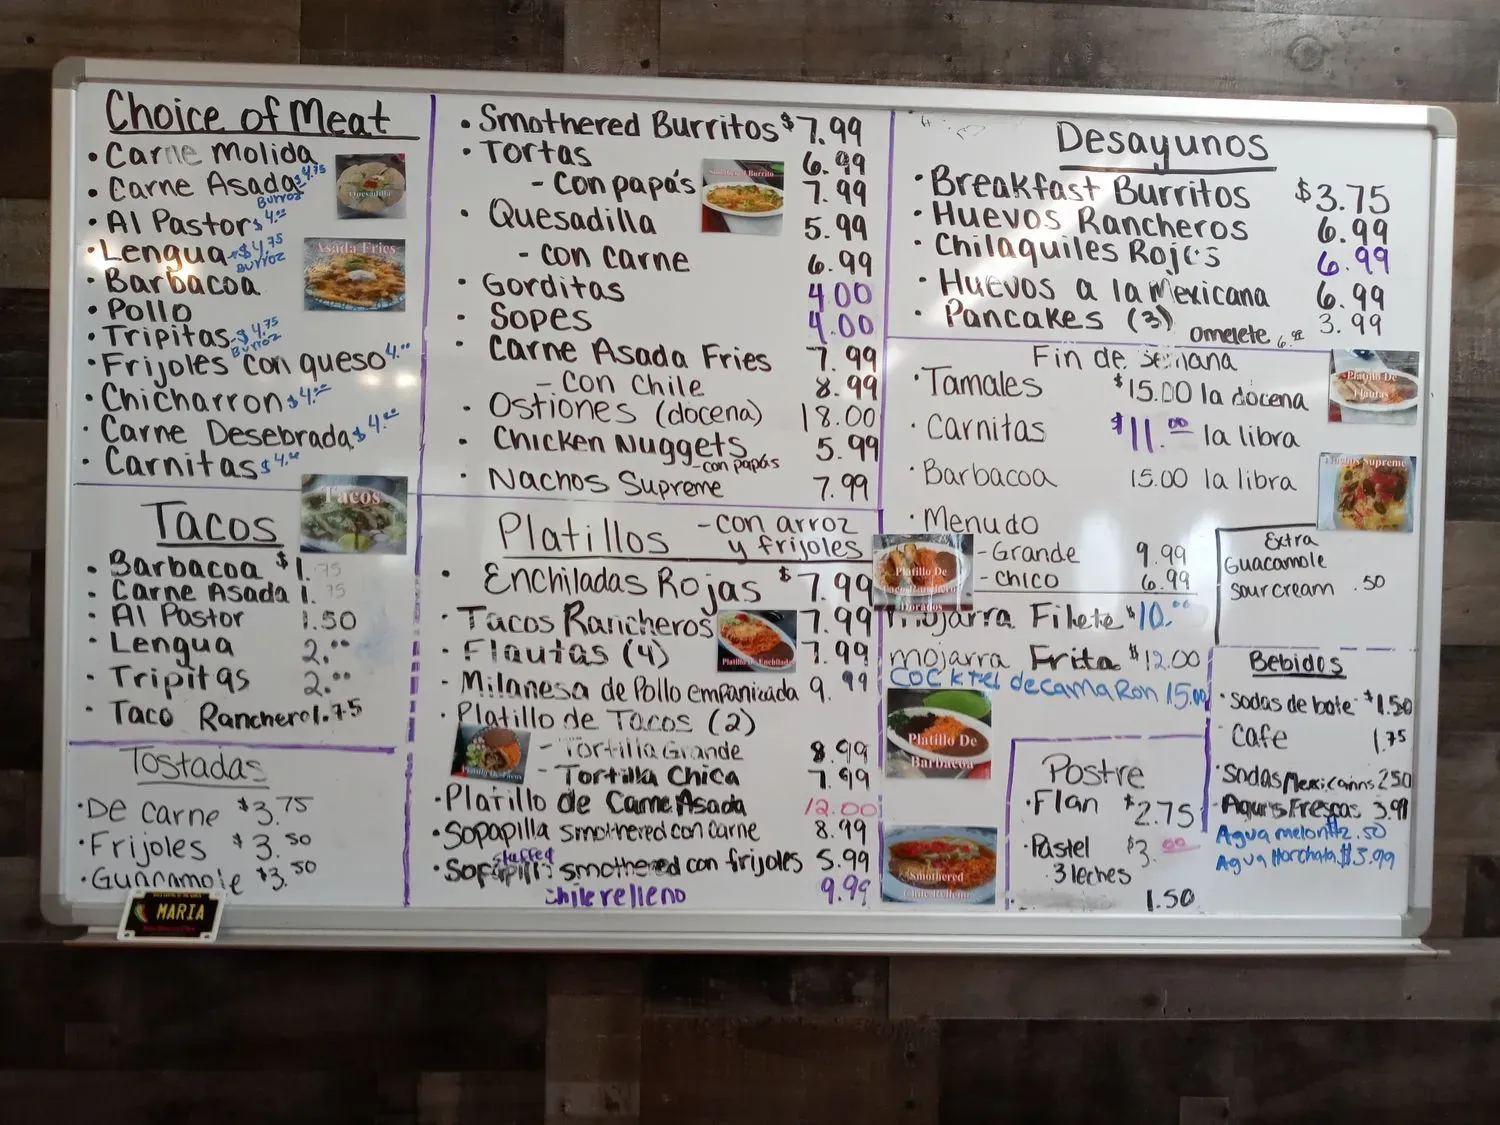 Choice of Meat
• Carne Molida
• Carne Asada $4.75
Burroz
• Al Pastor $4.00
• Lengua - $4.75
Burroz
• Barbacoa
• Pollo
• Tripitas - $4.75
Burroz
• Frijoles con queso 4.00
• Chicharron $4.00
• Carne Desebrada $4.00
• Carnitas $4.00
Quesadilla
Asada Fries
Tacos
TACOS
• Barbacoa $1.75
• Carne Asada 1.75
• Al Pastor 1.50
• Lengua 2.00
• Tripitas 2.00
• Taco Ranchero 1.75
Tostadas
• De Carne $3.75
• Frijoles $3.50
• Guacamole $3.50
MARIA
• Smothered Burritos $7.99
• Tortas 6.99
- con papás 7.99
• Quesadilla 5.99
- con carne 6.99
• Gorditas 4.00
• Sopes 4.00
• Carne Asada Fries 7.99
- con chile 8.99
• Ostiones (docena) 18.00
• Chicken Nuggets 5.99
- con papás
• Nachos Supreme 7.99
Smothered Burrito
Platillos - con arroz
y frijoles
• Enchiladas Rojas $7.99
• Tacos Rancheros 7.99
• Flautas (4) 7.99
• Milanesa de Pollo empanizada 9.99
• Platillo de Tacos (2)
- Tortilla Grande 8.99
- Tortilla Chica 7.99
• Platillo de Carne Asada 12.00
• Sopapilla smothered con carne 8.99
stuffed
• smothered con frijoles 5.99
chile relleno 9.99
Desayunos
• Breakfast Burritos $3.75
• Huevos Rancheros 6.99
• Chilaquiles Rojos 6.99
• Huevos a la Mexicana 6.99
• Pancakes (3) 3.99
omelete 6.99
Fin de Semana
• Tamales $15.00 la docena
• Carnitas $11.00 la libra
• Barbacoa 15.00 la libra
• Menudo
- Grande 9.99
- Chico 6.99
mojarra Filete $10.00
mojarra Frita $12.00
COCKtel de camaRon 15.00
Platillo De
Flautas
Nachos Supreme
Platillo De
Tacos Rancheros
Dorados
Platillo De
Barbacoa
Smothered
Chile Relleno
Extra
Guacamole
sour cream .50
Bebidas
• Sodas de bote $1.50
• Cafe 1.75
• Sodas Mexicanas 2.50
• Aguas Frescas 3.99
Agua melon $2.50
Agua Horchata $3.99
Postre
• Flan $2.75
• Pastel $3.00
3 leches
1.50